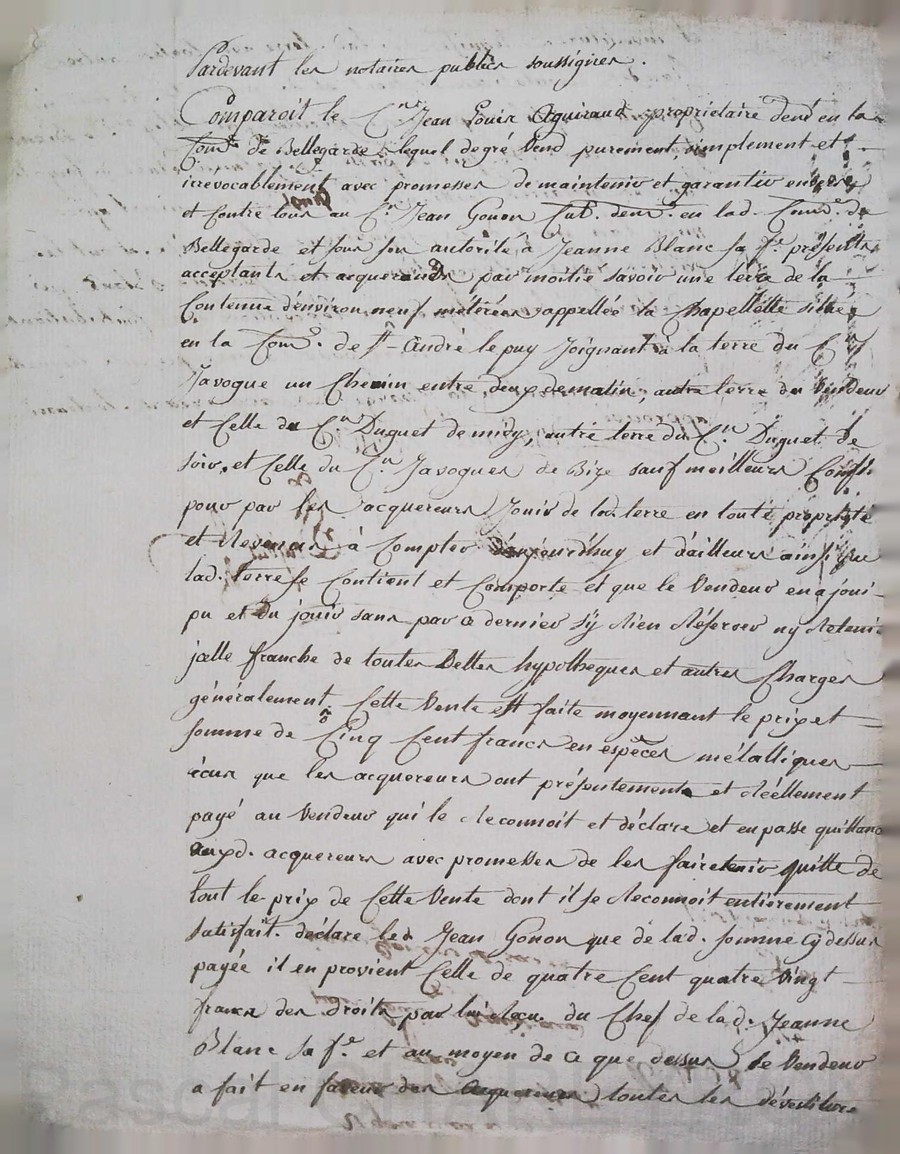 Pardevant les notaires publics soussignés.
Comparoit le C.en Jean Louis Aguiraud propriétaire demt en la
Com.e de Bellegarde lequel de gré vend purement simplement et
irrevocablement avec promesses de maintenir et garantir envers
et contre tous au C.en Jean Gonon Cult. demt. en lad. Comne. de
Bellegarde et sous son autorité à Jeanne Blanc sa fe. présents
acceptants et acquerands par moitié savoir une terre de la
Contenue d'environ neuf métérées appellée la Chapellette située
en la Come. de St. André le puy Joignant à la terre du C.en
Javogue un Chemin entre deux de matin, autre terre du Vendeur
et Celle du C.en Duguet de midy, autre terre du C.en Duguet de
soir, et Celle du C.en Javogues de Bize sauf meilleurs Confs.
pour par les acquereurs Jouir de lad. terre en toute propriété
et Revenus à Compter d'aujourd'huy et d'ailleurs ainsi que
lad. terre se Contient et Comporte et que le Vendeur en a joui
pu et du jouir sans par ce dernier s'y Rien Réserver ny Retenir
jcelle franche de toutes Dettes hypotheques et autres Charges
généralement. Cette Vente est faite moyennant le prix et
somme de Cinq Cent francs en espèces métalliques
écus que les acquereurs ont présentement et Réellement
payé au Vendeur qui le Reconnoit et déclare et en passe quittance
auxd. acquereurs avec promesses de les faire tenir quitte de
tout le prix de Cette Vente dont il se Reconnoit entièrement
satisfait. déclare led. Jean Gonon que de lad. somme cy dessus
payée il en provient Celle de quatre Cent quatre Vingt
francs des droits par lui Reçu du Chef de lad. Jeanne
Blanc sa fe. et au moyen de ce que dessus le Vendeur
a fait en faveur des acquereurs toutes les dévestiture